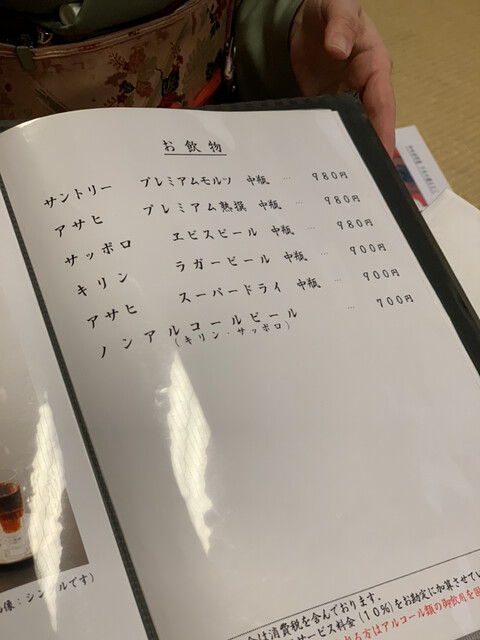 お飲物
サントリー プレミアムモルツ 中瓶 … 980円
アサヒ プレミアム熟撰 中瓶 … 980円
サッポロ ヱビスビール 中瓶 … 980円
キリン ラガービール 中瓶 … 900円
アサヒ スーパードライ 中瓶 … 900円
ノンアルコールビール … 700円
(キリン・サッポロ)
像：シングルです)
は消費税を含んでおります。
ービス料金(10%)をお勘定に加算させてい
る方はアルコール類の御飲用を